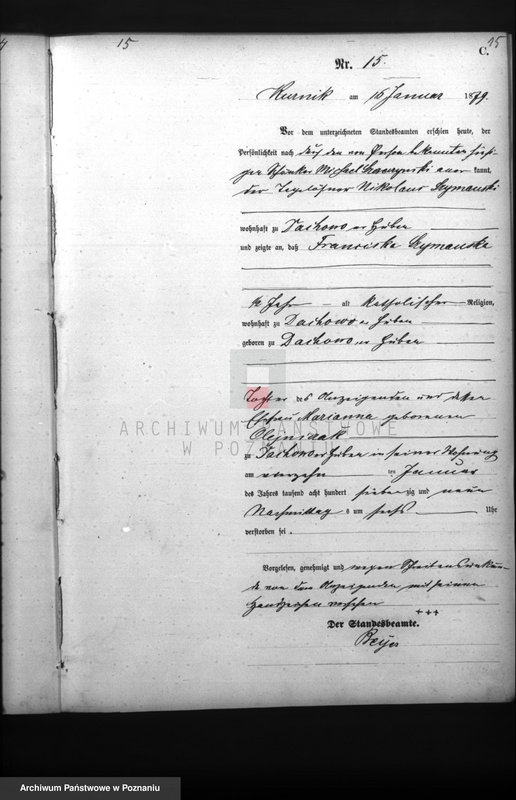 15
15
C.
Nr. 15.
Kurnik am 16 Januar 1879.
Vor dem unterzeichneten Standesbeamten erschien heute, der
Persönlichkeit nach durch den von Person bekannten hiesi-
gen Schänker Michael aner kannt,
der Tagelöhner Nikolaus Szymanski
wohnhaft zu Dachowo er Huben
und zeigte an, daß Franciska Szymanska
Jahr alt katholischer Religion,
wohnhaft zu Dachowo er Huben
geboren zu Dachowo er Huben
Tochter des Anzeigenden und dessen
Ehefrau Marianna geborenen
Olejniczak
ARCHIWUM PAŃSTWOWE
W POZNANIU
zu Dachowo er Huben in seiner Wohnung
am vierzehn ten Januar
des Jahres tausend acht hundert sieben zig und neun
Nachmittag s um sechs Uhr
verstorben sei.
Vorgelesen, genehmigt und wegen Schreibensunkun-
de von dem Anzeigenden mit seinen
Handzeichen versehen
+++
Der Standesbeamte.
Beyer
Archiwum Państwowe w Poznaniu